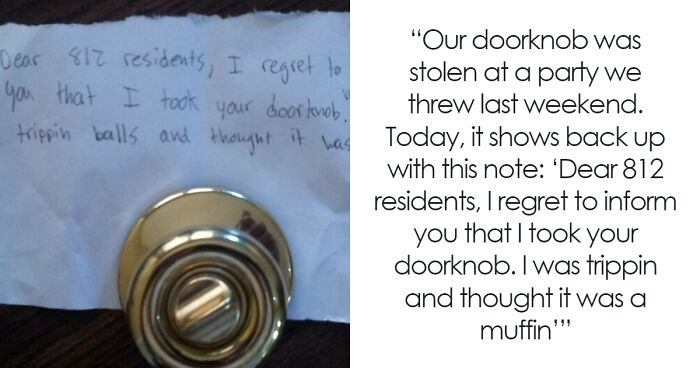 Dear 812 residents, I regret to
you that I took your doorknob.
trippin balls and thought it was
“Our doorknob was
stolen at a party we
threw last weekend.
Today, it shows back up
with this note: ‘Dear 812
residents, I regret to inform
you that I took your
doorknob. I was trippin
and thought it was a
muffin’”